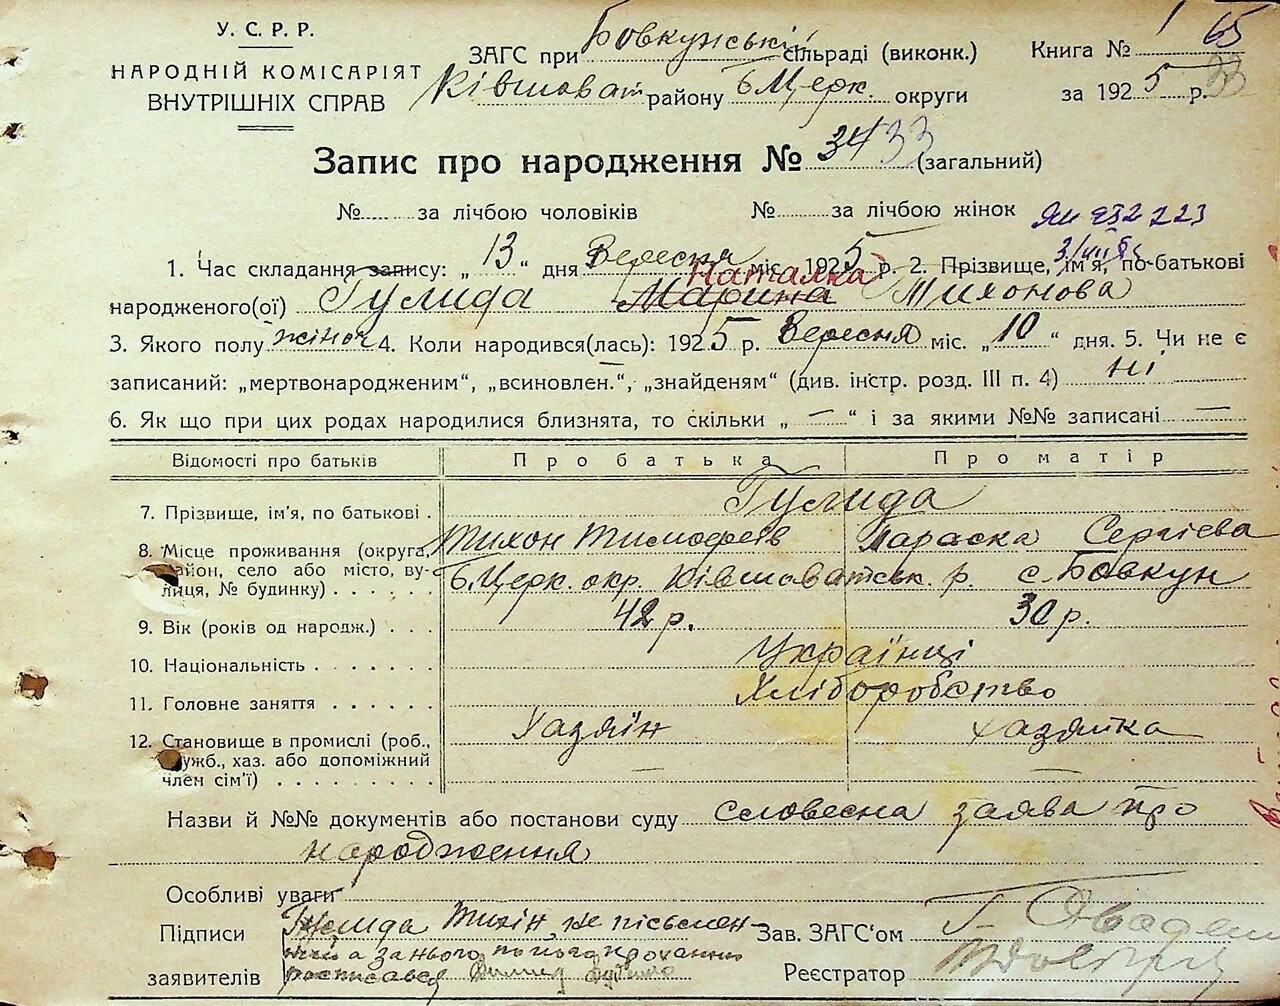 У. С. Р. Р.
НАРОДНІЙ КОМІСАРІЯТ
ВНУТРІШНІХ СПРАВ
ЗАГС при Бовкунські сільраді (виконк.)
Ківшоват району БЦерк. округи
Книга № 1 65
за 1925 р. 33
Запис про народження № 34 33 (загальний)
№ за лічбою чоловіків № за лічбою жінок
1. Час складання запису: „13“ дня Вересня міс. 1925 р. 2. Прізвище, ім'я, по-батькові
Наталка
народженого(ої) Гулида Марина Тихонова
3. Якого полу жіноч 4. Коли народився(лась): 1925 р. Вересня міс. „10“ дня. 5. Чи не є
записаний: „мертвонародженим“, „всиновлен.“, „знайденям“ (див. інстр. розд. III п. 4) ні
6. Як що при цих родах народилися близнята, то скільки „—“ і за якими №№ записані —
Відомості про батьків Про батька Про матір
Гулида
7. Прізвище, ім'я, по батькові . Тихон Тимофеїв Параска Сергієва
8. Місце проживання (округа, район, село або місто, вулиця, № будинку) . . . . . . БЦерк. окр. Ківшоватськ. р. с. Бовкун
9. Вік (років од народж.) . . . 42 р. 30 р.
10. Національність . . . . . . . Українці
11. Головне заняття . . . . . . Хліборобство
12. Становище в промислі (роб., служб., хаз. або допоміжний член сім'ї) . . . . . . . . . Хазяїн хазяйка
Назви й №№ документів або постанови суду словесна заява про
народження
Особливі уваги
Підписи заявителів Гулида Тихін, не письмен
ний а за нього по його проханню
росписався
Зав. ЗАГС'ом
Реєстратор